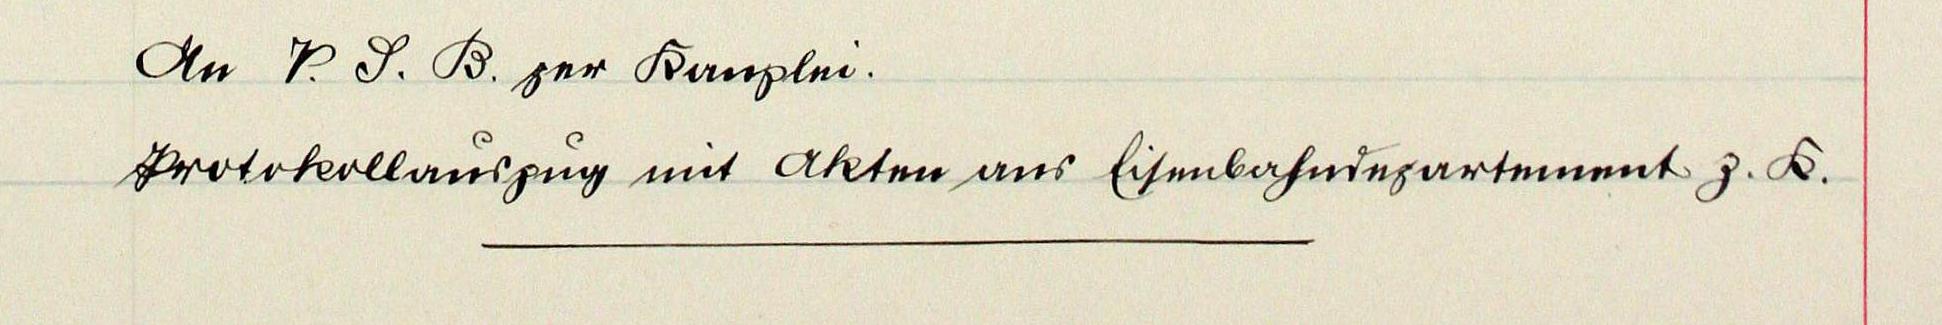 An V. S. B. per Kanzlei.
Protokollauszug mit Akten ans Eisenbahndepartement z. K.